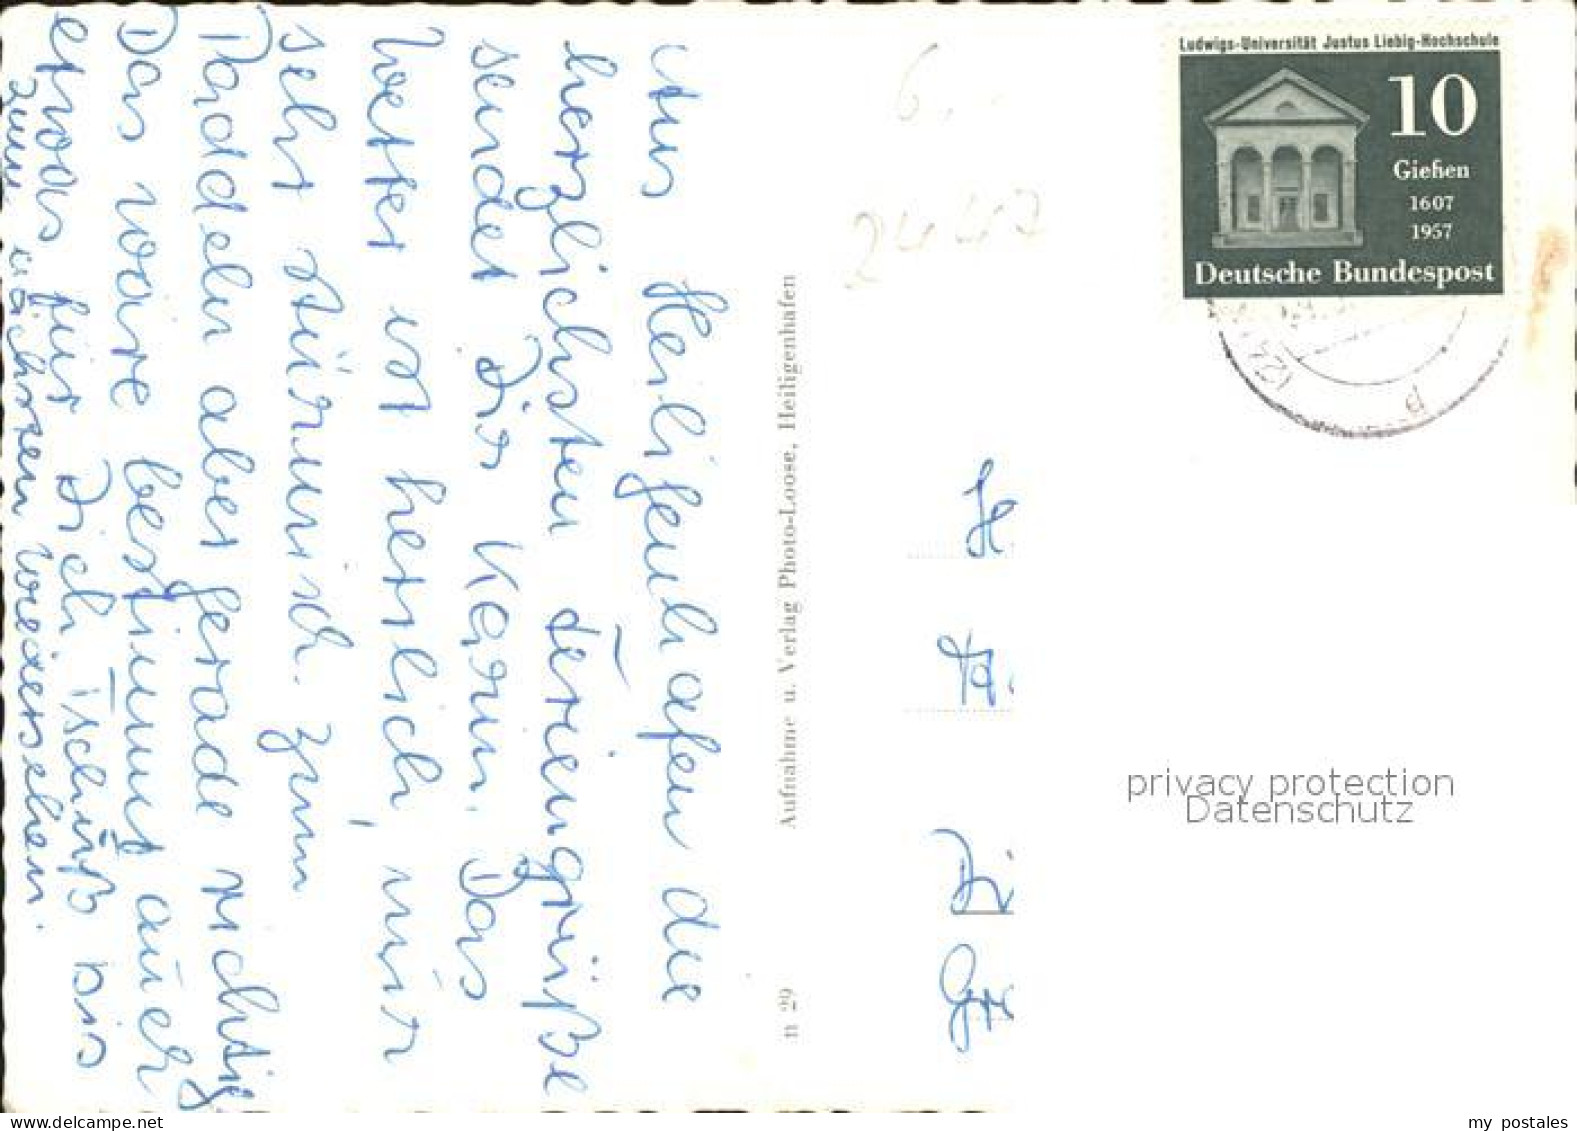 Aus Heiligenhafen die
herzlichsten Feriengrüße
sendet Dir Karin. Das
Wetter ist herrlich, nur
sehr stürmisch. Zum
Paddeln aber gerade richtig
Das wäre bestimmt auch
etwas für Dich. Tschüß bis
zum nächsten Wiedersehen.
n 29 Aufnahme u. Verlag Photo-Loose, Heiligenhafen
6.
Ludwigs-Universität Justus Liebig-Hochschule
10
Gießen
1607
1957
Deutsche Bundespost
privacy protection
Datenschutz
www.delcampe.net
my postales